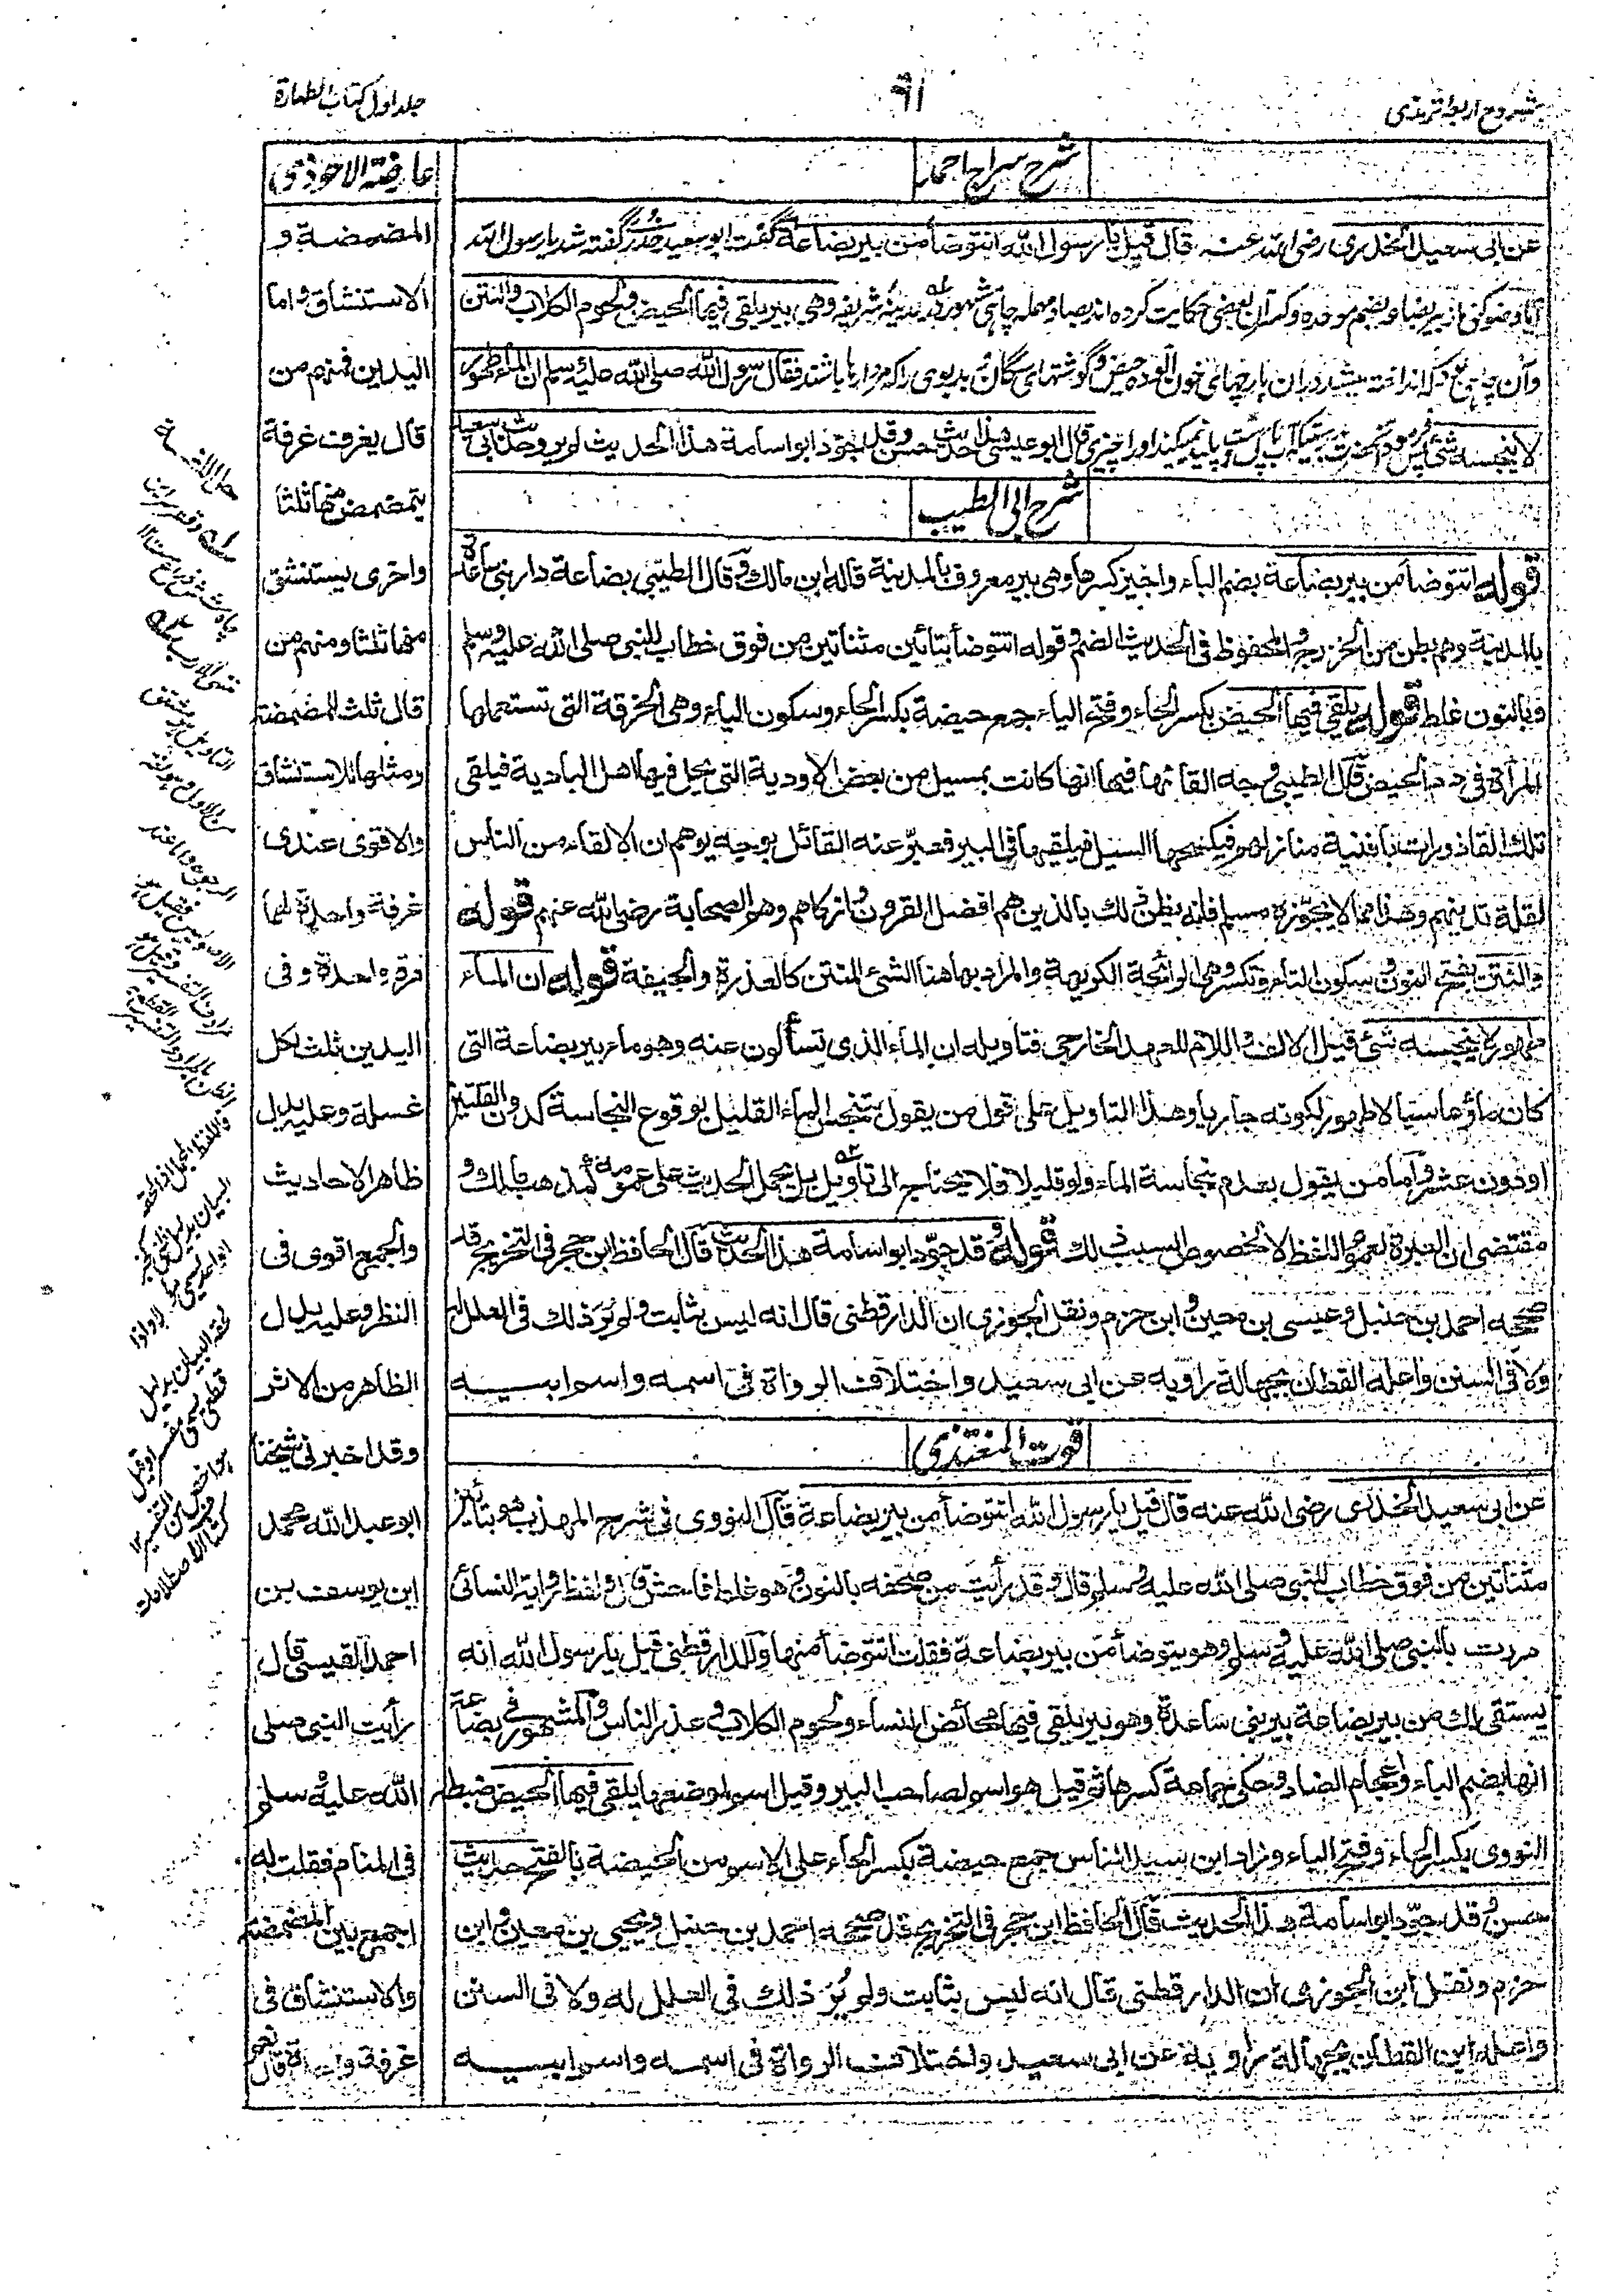 شروح اربعۂ ترمذی
٩١
جلد اول کتاب الطهارة
شرح سراج احمد
عن ابی سعید الخدری رضی الله عنه قال قیل یا رسول الله انتوضأ من بیر بضاعة گفت ابو سعید خدری گفته شد یا رسول الله
آیا وضو کنی از بیر بضاعه بضم موحده وکسر آن بعضی حکایت کرده اند بصاد مهمله چاهی مشهور در مدینۂ شریفه وهی بیر یلقی فیها الحیض ولحوم الکلاب والنتن
وآن چاهی که انداخته میشد در ان پارچهای خون آلوده حیض وگوشتهای سگان بدبوی را که مردارها باشند فقال رسول الله صلی الله علیه وسلم ان الماء طهور
لا ینجسه شئ پس فرمود آنحضرت بدرستیکه آب پاک ست پلید نمیکند او را چیزی قال ابو عیسی هذا حدیث حسن وقد جود ابو اسامة هذا الحدیث لم یرو حدیث ابی سعید
شرح ابی الطیب
قوله انتوضأ من بیر بضاعة بضم الباء واجیز کسرها وهی بیر معروف بالمدینة قاله ابن مالک وقال الطیبی بضاعة دار بنی ساعدة
بالمدینة وهم بطن من الخزرج والمحفوظ فی الحدیث الضم وقوله انتوضأ بتائین مثناتین من فوق خطاب للنبی صلی الله علیه وسلم
وبالنون غلط قوله یلقی فیها الحیض بکسر الحاء وفتح الیاء جمع حیضة بکسر الحاء وسکون الیاء وهی الخرقة التی تستعملها
المرأة فی دم الحیض قال الطیبی وجه القائها فیها انها کانت بمسیل من بعض الاودیة التی یحل فیها اهل البادیة فیلقی
تلک القاذورات بافنیة منازلهم فیکنسها السیل فیلقیها فی البیر فعبّر عنه القائل بوجه یوهم ان الالقاء من الناس
لقلة تدینهم وهذا مما لا یجوزه مسلم فانی یظن ذلک بالذین هم افضل القرون وازکاهم وهو الصحابة رضی الله عنهم قوله
والنتن بفتح النون وسکون التاء وتکسر وهی الرائحة الکریهة والمراد بها هنا الشئ المنتن کالعذرة والجیفة قوله ان الماء
طهور لا ینجسه شئ قیل الالف واللام للعهد الخارجی فتاویله ان الماء الذی تسألون عنه وهو ماء بیر بضاعة التی
کان ماؤها سیالا طهور لکونه جاریا وهذا التاویل علی قول من یقول بتنجس الماء القلیل بوقوع النجاسة کدون القلتین
او دون عشر واما من یقول بعدم نجاسة الماء ولو قلیلا فلا یحتاج الی تاویل بل یحمل الحدیث علی عمومه کمذهب مالک و
مقتضی ان العبرة لعموم اللفظ لا لخصوص السبب ذلک قوله وقد جود ابو اسامة هذا الحدیث قال الحافظ ابن حجر فی التخریج قد
صححه احمد بن حنبل وعیسی بن معین وابن حزم ونقل الجوزی ان الدارقطنی قال انه لیس بثابت ولم یر ذلک فی العلل له
ولا فی السنن واعله القطان بجهالة راویه عن ابی سعید واختلاف الرواة فی اسمه واسم ابیه
قوت المغتذی
عن ابی سعید الخدری رضی الله عنه قال قیل یا رسول الله انتوضأ من بیر بضاعة قال النووی فی شرح المهذب هو بتائین
مثناتین من فوق خطاب للنبی صلی الله علیه وسلم قال وقد رأیت من صحفه بالنون وهو غلط فاحش قال وفی لفظ روایة النسائی
مررت بالنبی صلی الله علیه وسلم وهو یتوضأ من بیر بضاعة فقلت انتوضأ منها وللدارقطنی قیل یا رسول الله انه
یستقی لک من بیر بضاعة بیر بنی ساعدة وهو بیر یلقی فیها محائض النساء ولحوم الکلاب وعذر الناس والمشهور فی بضاعة
انها بضم الباء واعجام الضاد وحکی جماعة کسرها ثم قیل هو اسم لصاحب البیر وقیل اسم لموضعها یلقی فیها الحیض ضبطه
النووی بکسر الحاء وفتح الیاء وزاد ابن سید الناس جمع حیضة بکسر الحاء علی الاسم من الحیضة بالفتح حدیث
حسن وقد جود ابو اسامة هذا الحدیث قال الحافظ ابن حجر فی التخریج قد صححه احمد بن حنبل ویحیی بن معین وابن
حزم ونقل ابن الجوزی ان الدارقطنی قال انه لیس بثابت ولم یُرَ ذلک فی العلل له ولا فی السنن
واعله ابن القطان بجهالة راویه عن ابی سعید واختلاف الرواة فی اسمه واسم ابیه
عارضة الاحوذی
المضمضة و
الاستنشاق واما
الیدین فمنهم من
قال یغرف غرفة
یتمضمض منها ثلثا
واخری یستنشق
منها ثلثا ومنهم من
قال ثلث للمضمضة
ومثلها للاستنشاق
والاقوی عندی
غرفة واحدة لهما
مرة واحدة وفی
الیدین ثلث لکل
غسلة وعلیه یدل
ظاهر الاحادیث
والجمع اقوی فی
النظر وعلیه یدل
الظاهر من الاثر
وقد اخبرنی شیخنا
ابو عبد الله محمد
ابن یوسف بن
احمد القیسی قال
رأیت النبی صلی
الله علیه وسلم
فی المنام فقلت له
اجمع بین المضمضة
والاستنشاق فی
غرفة واحدة قال نعم